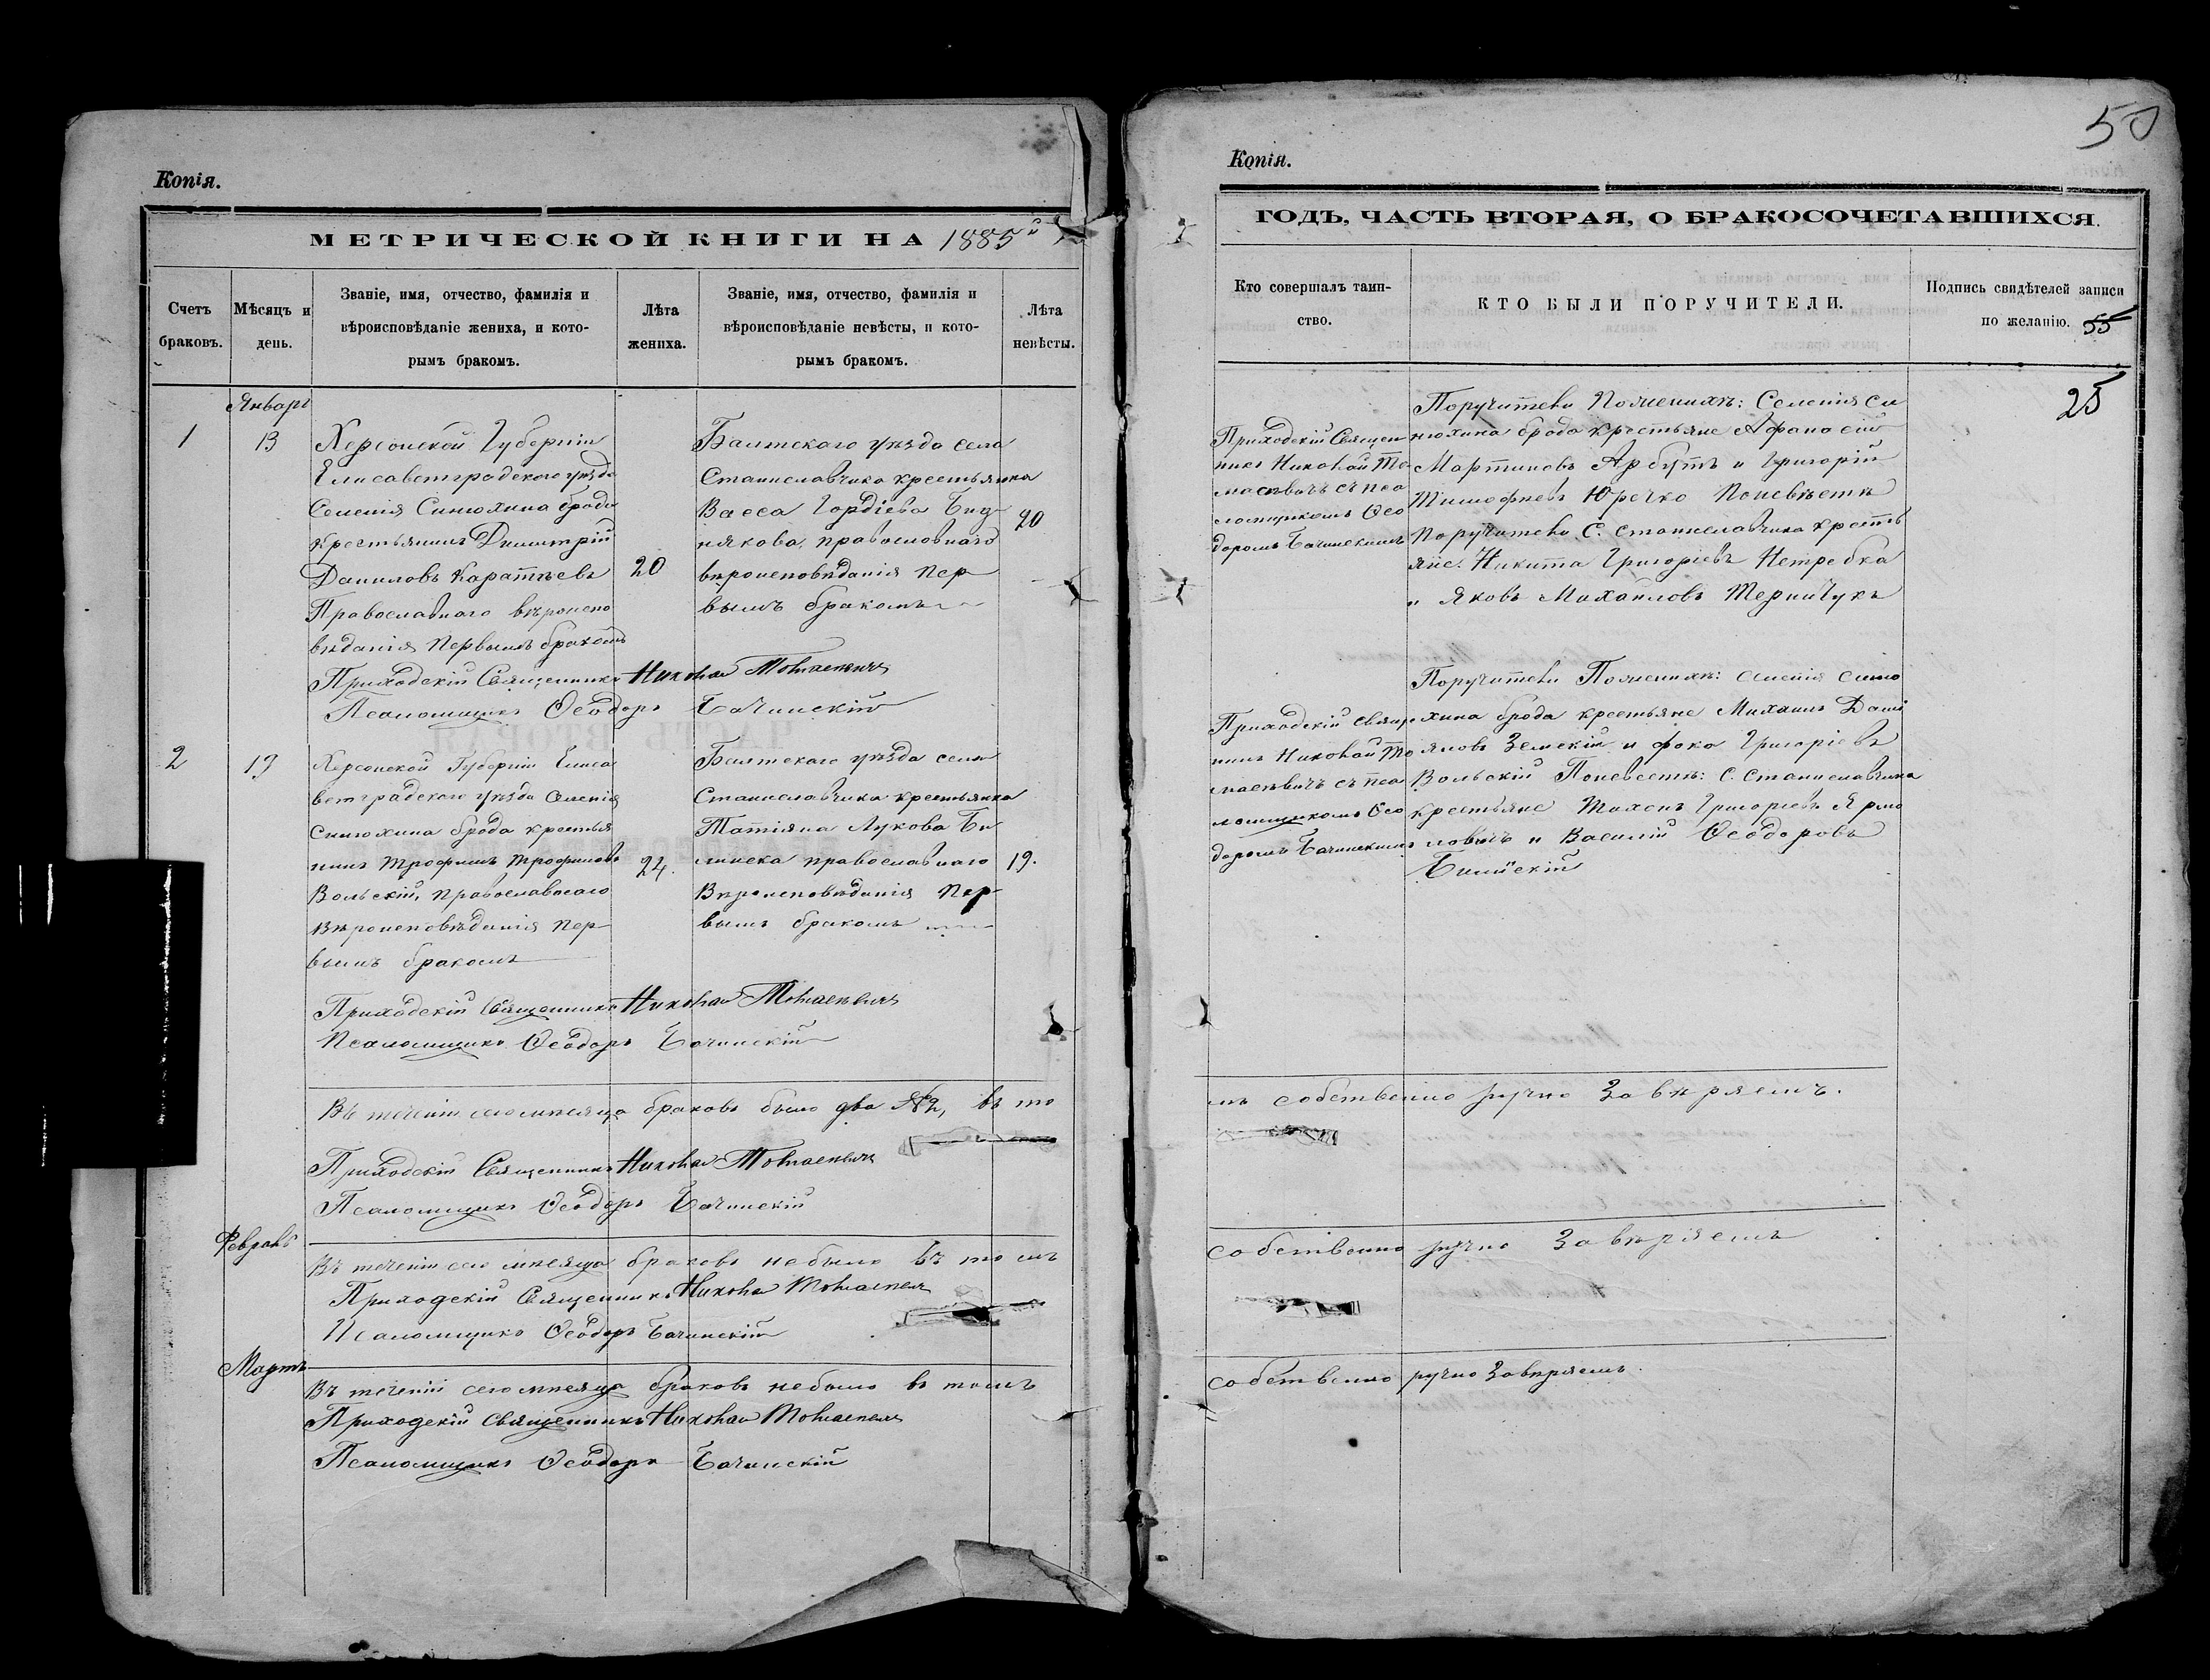 Копія.
МЕТРИЧЕСКОЙ КНИГИ НА 1885й
Счетъ браковъ.
Мѣсяцъ и день.
Званіе, имя, отчество, фамилія и
вѣроисповѣданіе жениха, и кото-
рымъ бракомъ.
Лѣта жениха.
Званіе, имя, отчество, фамилія и
вѣроисповѣданіе невѣсты, и кото-
рымъ бракомъ.
Лѣта невѣсты.
Январь
1
13
Херсонской Губерніи
Елисаветградскаго уѣзда
Селенія Синюхина брода
крестьянинъ Димитрій
Даниловъ Каратѣевъ
Православнаго вѣроиспо
вѣданія Первымъ бракомъ
20
Балтскаго уѣзда села
Станиславчика крестьянка
Васса Гордіева Бид-
някова, православнаго
вѣроисповѣданія пер-
вымъ бракомъ
20
Приходскій Священникъ Николай
Псаломщикъ Ѳеодоръ Бачинскій
2
19
Херсонской Губерніи Елиса
ветградскаго уѣзда Селенія
Синюхина брода крестья
нинъ Трофимъ Трофимовъ
Вольскій, православнаго
Вѣроисповѣданія пер-
вымъ бракомъ
24.
Балтскаго уѣзда села
Станиславчика крестьянка
Татіяна Лукова Би
линска православнаго
Вѣроисповѣданія Пер-
вымъ бракомъ
19.
Приходскій Священникъ Николай
Псаломщикъ Ѳеодоръ Бачинскій
Въ теченіи сего мѣсяца браковъ было два №2, въ то
Приходскій Священникъ Николай
Псаломщикъ Ѳеодоръ Бачинскій
Февраль
Въ теченіи сего мѣсяца браковъ небыло въ томъ
Приходскій Священникъ Николай
Псаломщикъ Ѳеодоръ Бачинскій
Мартъ
Въ теченіи сего мѣсяца браковъ небыло въ томъ
Приходскій Священникъ Николай
Псаломщикъ Ѳеодоръ Бачинскій
Копія.
50
ГОДЪ, ЧАСТЬ ВТОРАЯ, О БРАКОСОЧЕТАВШИХСЯ.
Кто совершалъ таин-
ство.
КТО БЫЛИ ПОРУЧИТЕЛИ.
Подпись свидѣтелей записи
по желанію.
55
25
Приходскій Священ
никъ Николай То
масѣвичъ съ пса
ломщикомъ Ѳео
доромъ Бачинскимъ
Поручители Поженихѣ: Селенія Си
нюхина брода крестьяне Афанасій
Мартиновъ Арбутъ и Григорій
Тимофѣевъ Юречко Поневѣстѣ
Поручители С. Станиславчика крестъ
яне. Никита Григоріевъ Нетребка
и Яковъ Михайловъ Терничукъ
Приходскій Свяще
никъ Николай То
масѣвичъ съ пса
ломщикомъ Ѳео
доромъ Бачинскимъ
Поручители Поженихѣ: Селенія Синю
хина брода крестьяне Михаилъ Дані
яловъ Земскій и Фока Григоріевъ
Вольскій Поневестѣ: С. Станиславчика
крестьяне Тихонъ Григоріевъ Ярмо
ловичъ и Василій Ѳеодоровъ
Билинскій
мъ собственно ручно Завѣряемъ.
собственно ручно Завѣряемъ
собственно ручно Завѣряемъ.